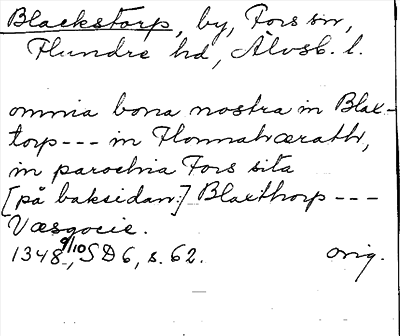 Blackstorp, by, Fors sn,
Flundre hd, Älvsb. l.
omnia bona nostra in Blax-
torp --- in Flonnahærath,
in parochia Fors sita
[på baksidan:] Blaxthorp ---
Væsgocie.
1348 9/10, SD 6, s. 62. orig.